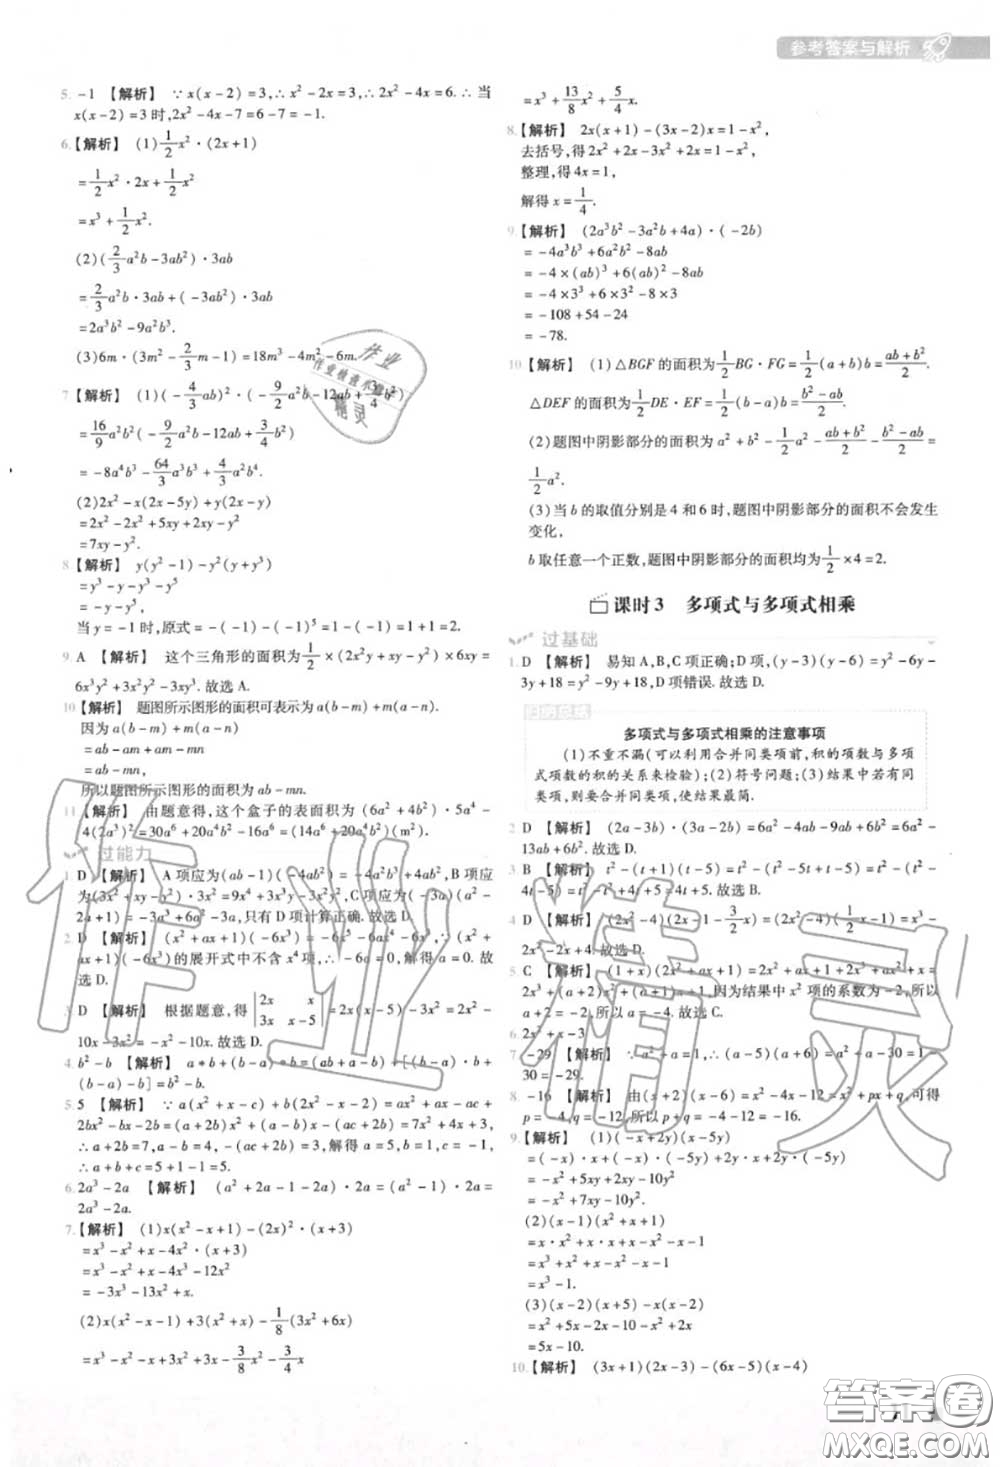 参考答案与解析
5. -1 【解析】 ∵x(x-2)=3,∴x²-2x=3,∴2x²-4x=6.∴当
x(x-2)=3时,2x²-4x-7=6-7=-1.
6.【解析】 (1)1/2x²·(2x+1)
=1/2x²·2x+1/2x²
=x³+1/2x².
(2)(2/3a²b-3ab²)·3ab
=2/3a²b·3ab+(-3ab²)·3ab
=2a³b²-9a²b³.
(3)6m·(3m²-2/3m-1)=18m³-4m²-6m.
7.【解析】 (1)(-4/3ab)²·(-9/2a²b-12ab+3/4b²)
=16/9a²b²(-9/2a²b-12ab+3/4b²)
=-8a⁴b³-64/3a³b³+4/3a²b⁴.
(2)2x²-x(2x-5y)+y(2x-y)
=2x²-2x²+5xy+2xy-y²
=7xy-y².
8.【解析】 y(y²-1)-y²(y+y³)
=y³-y-y³-y⁵
=-y-y⁵.
当y=-1时,原式=-(-1)-(-1)⁵=1-(-1)=2.
9. A 【解析】 这个三角形的面积为1/2×(2x²y+xy-y²)×6xy=
6x³y²+3x²y²-3xy³.故选A.
10.【解析】 题图所示图形的面积可表示为a(b-m)+m(a-n).
因为a(b-m)+m(a-n)
=ab-am+am-mn
=ab-mn,
所以题图所示图形的面积为ab-mn.
11.【解析】 由题意得,这个盒子的表面积为(6a²+4b²)·5a⁴-
4(2a³)²=30a⁶+20a⁴b²-16a⁶=(14a⁶+20a⁴b²)(m²).
过能力
1. D 【解析】 A项应为(-ab)(-4ab²)=4ab²+4ab³,B项应
为(3x²y)²·(x²+3xy-1)=9x⁶+3x³y-3x²y²,C项应为(-3a)(a²-
2a+1)=-3a³+6a²-3a,只有D项计算正确.故选D.
2. D 【解析】 (x²+ax+1)(-6x³)=-6x⁵-6ax⁴-6x³,∵(x²+
ax+1)(-6x³)的展开式中不含x⁴项,∴-6a=0,解得a=0.故选D.
3. D 【解析】 根据题意,得|2x x 3x x-5|=2x(x-5)-3x²=2x²-
10x-3x²=-x²-10x.故选D.
4. b²-b 【解析】 a*b+(b-a)*b=ab+a-b+[(b-a)·b+
(b-a)-b]=b²-b.
5. 5 【解析】 ∵a(x²+x-c)+b(2x²-x-2)=ax²+ax-ac+
2bx²-bx-2b=(a+2b)x²+(a-b)x-(ac+2b)=7x²+4x+3,
∴a+2b=7,a-b=4,-(ac+2b)=3,解得a=5,b=1,c=-1,
∴a+b+c=5+1-1=5.
6. 2a³-2a 【解析】 (a²+2a-1-2a)·2a=(a²-1)·2a=
2a³-2a.
7.【解析】 (1)x(x²-x+1)-(2x)²·(x+3)
=x³-x²+x-4x²·(x+3)
=x³-x²+x-4x³-12x²
=-3x³-13x²+x.
(2)x(x²-x-1)+3(x²+x)-1/8(3x²+6x)
=x³-x²-x+3x²+3x-3/8x²-3/4x
=x³+13/8x²+5/4x.
8.【解析】 2x(x+1)-(3x-2)x=1-x²,
去括号,得2x²+2x-3x²+2x=1-x²,
整理,得4x=1,
解得x=1/4.
9.【解析】 (2a³b²-3a²b+4a)·(-2b)
=-4a³b³+6a²b²-8ab
=-4×(ab)³+6(ab)²-8ab
=-4×3³+6×3²-8×3
=-108+54-24
=-78.
10.【解析】 (1)△BGF的面积为1/2BG·FG=1/2(a+b)b=(ab+b²)/2.
△DEF的面积为1/2DE·EF=1/2(b-a)b=(b²-ab)/2.
(2)题图中阴影部分的面积为a²+b²-1/2a²-(ab+b²)/2-(b²-ab)/2=
1/2a².
(3)当b的取值分别是4和6时,题图中阴影部分的面积不会发生
变化,
b取任意一个正数,题图中阴影部分的面积均为1/2×4=2.
课时3 多项式与多项式相乘
过基础
1. D 【解析】 易知A,B,C项正确;D项,(y-3)(y-6)=y²-6y-
3y+18=y²-9y+18,D项错误.故选D.
归纳总结
多项式与多项式相乘的注意事项
(1)不重不漏(可以利用合并同类项前,积的项数与多项
式项数的积的关系来检验);(2)符号问题;(3)结果中若有同
类项,则要合并同类项,使结果最简.
2. D 【解析】 (2a-3b)·(3a-2b)=6a²-4ab-9ab+6b²=6a²-
13ab+6b².故选D.
3. B 【解析】 t²-(t+1)(t-5)=t²-(t²-5t+t-5)=t²-(t²-
4t-5)=t²-t²+4t+5=4t+5.故选B.
4. D 【解析】
5. C 【解析】 (1+x)(2x²+ax+1)=2x²+ax+1+2x³+ax²+x=
2x³+(a+2)x²+(a+1)x+1,因为结果中x²项的系数为-2,所以
a+2=-2,所以a=-4.故选C.
6. 2x²+x-3
7. -29 【解析】 ∵a²+a=1,∴(a-5)(a+6)=a²+a-30=1-
30=-29.
8. -16 【解析】 由(x+2)(x-6)=x²-4x-12=x²+px+q,可得
p=-4,q=-12,所以p+q=-4-12=-16.
9.【解析】 (1)(-x+2y)(x-5y)
=(-x)·x+(-x)·(-5y)+2y·x+2y·(-5y)
=-x²+5xy+2xy-10y²
=-x²+7xy-10y².
(2)(x-1)(x²+x+1)
=x·x²+x·x+x-x²-x-1
=x³+x²+x-x²-x-1
=x³-1.
(3)(x-2)(x+5)-x(x-2)
=x²+5x-2x-10-x²+2x
=5x-10.
10.【解析】 (3x+1)(2x-3)-(6x-5)(x-4)
作业精灵
答案圈
MXQE.COM